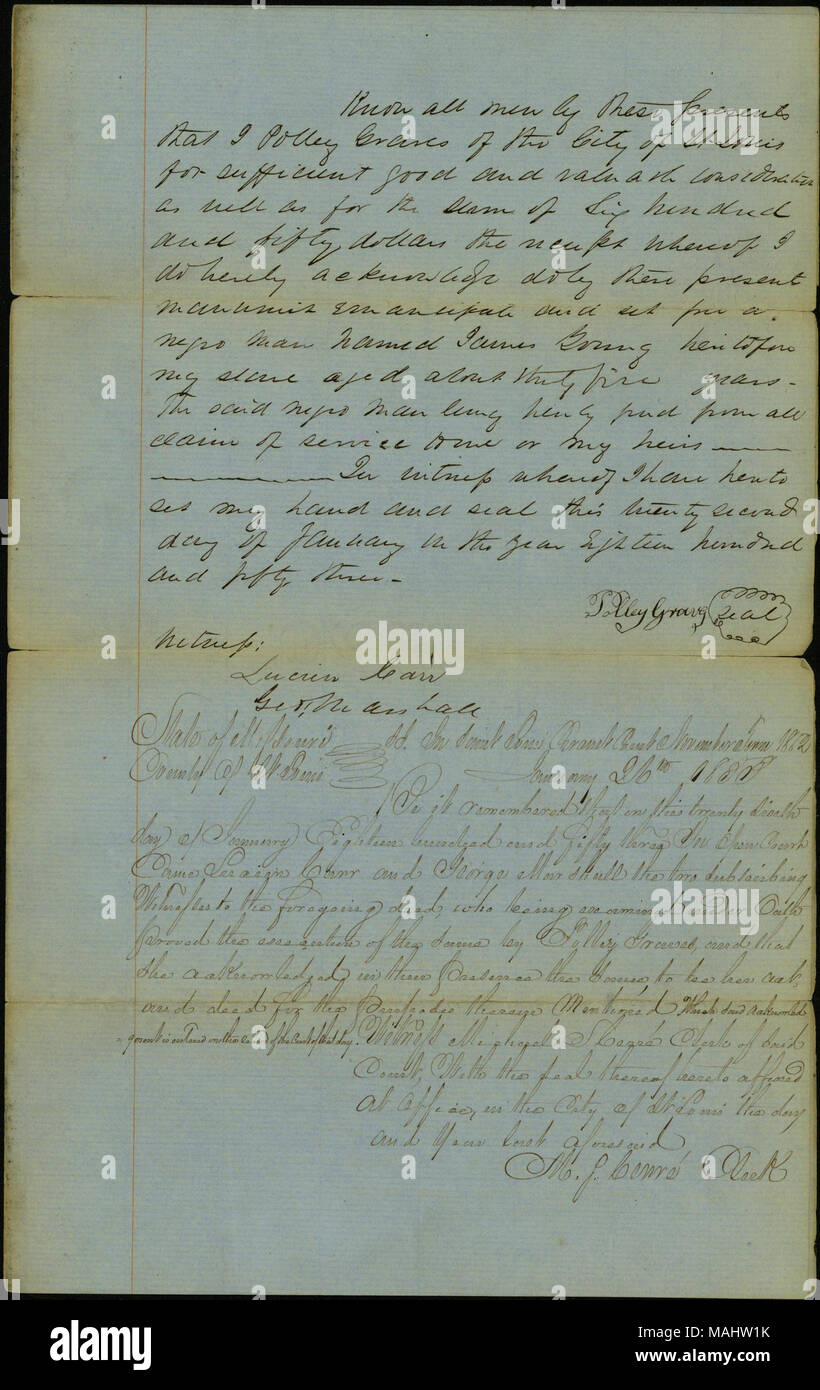 Know all men by these presents
that I Polley Graves of the City of St Louis
for sufficient good and valuable consideration
as well as for the sum of Six hundred
and fifty dollars the receipt whereof I
do hereby acknowledge do by these present
manumit emancipate and set free a
negro man named James Young heretofore
my slave aged about thirty five years -
The said negro man being hereby freed from all
claim of service to me or my heirs
In witness whereof I have hereto
set my hand and seal this twenty second
day of January in the year Eighteen hundred
and fifty three -
Polley Graves Seal
Witness:
Lucien Carr
Geo. Marshall
State of Missouri In Saint Louis Circuit Court November Term 1852
County of St Louis January 26th
Be it remembered that on this twenty sixth
day of January Eighteen hundred and fifty three In Open Court
Came Carr and George Marshall the two subscribing
Witnesses to the foregoing deed, who being examined under Oath
proved the execution of the same by Polley Graves, and that
She acknowledged in their presence the same to be her act
and deed for the purposes therein Mentioned Which said acknowled
gement is entered on the record of the Court of that day. Witness Clerk of said
Court, With the seal thereof hereto affixed
at office, in the City of St Louis the day
and Year last aforesaid
M. J. Clerk
a alamy
alamy
Image ID: MAHW1K
www.alamy.com